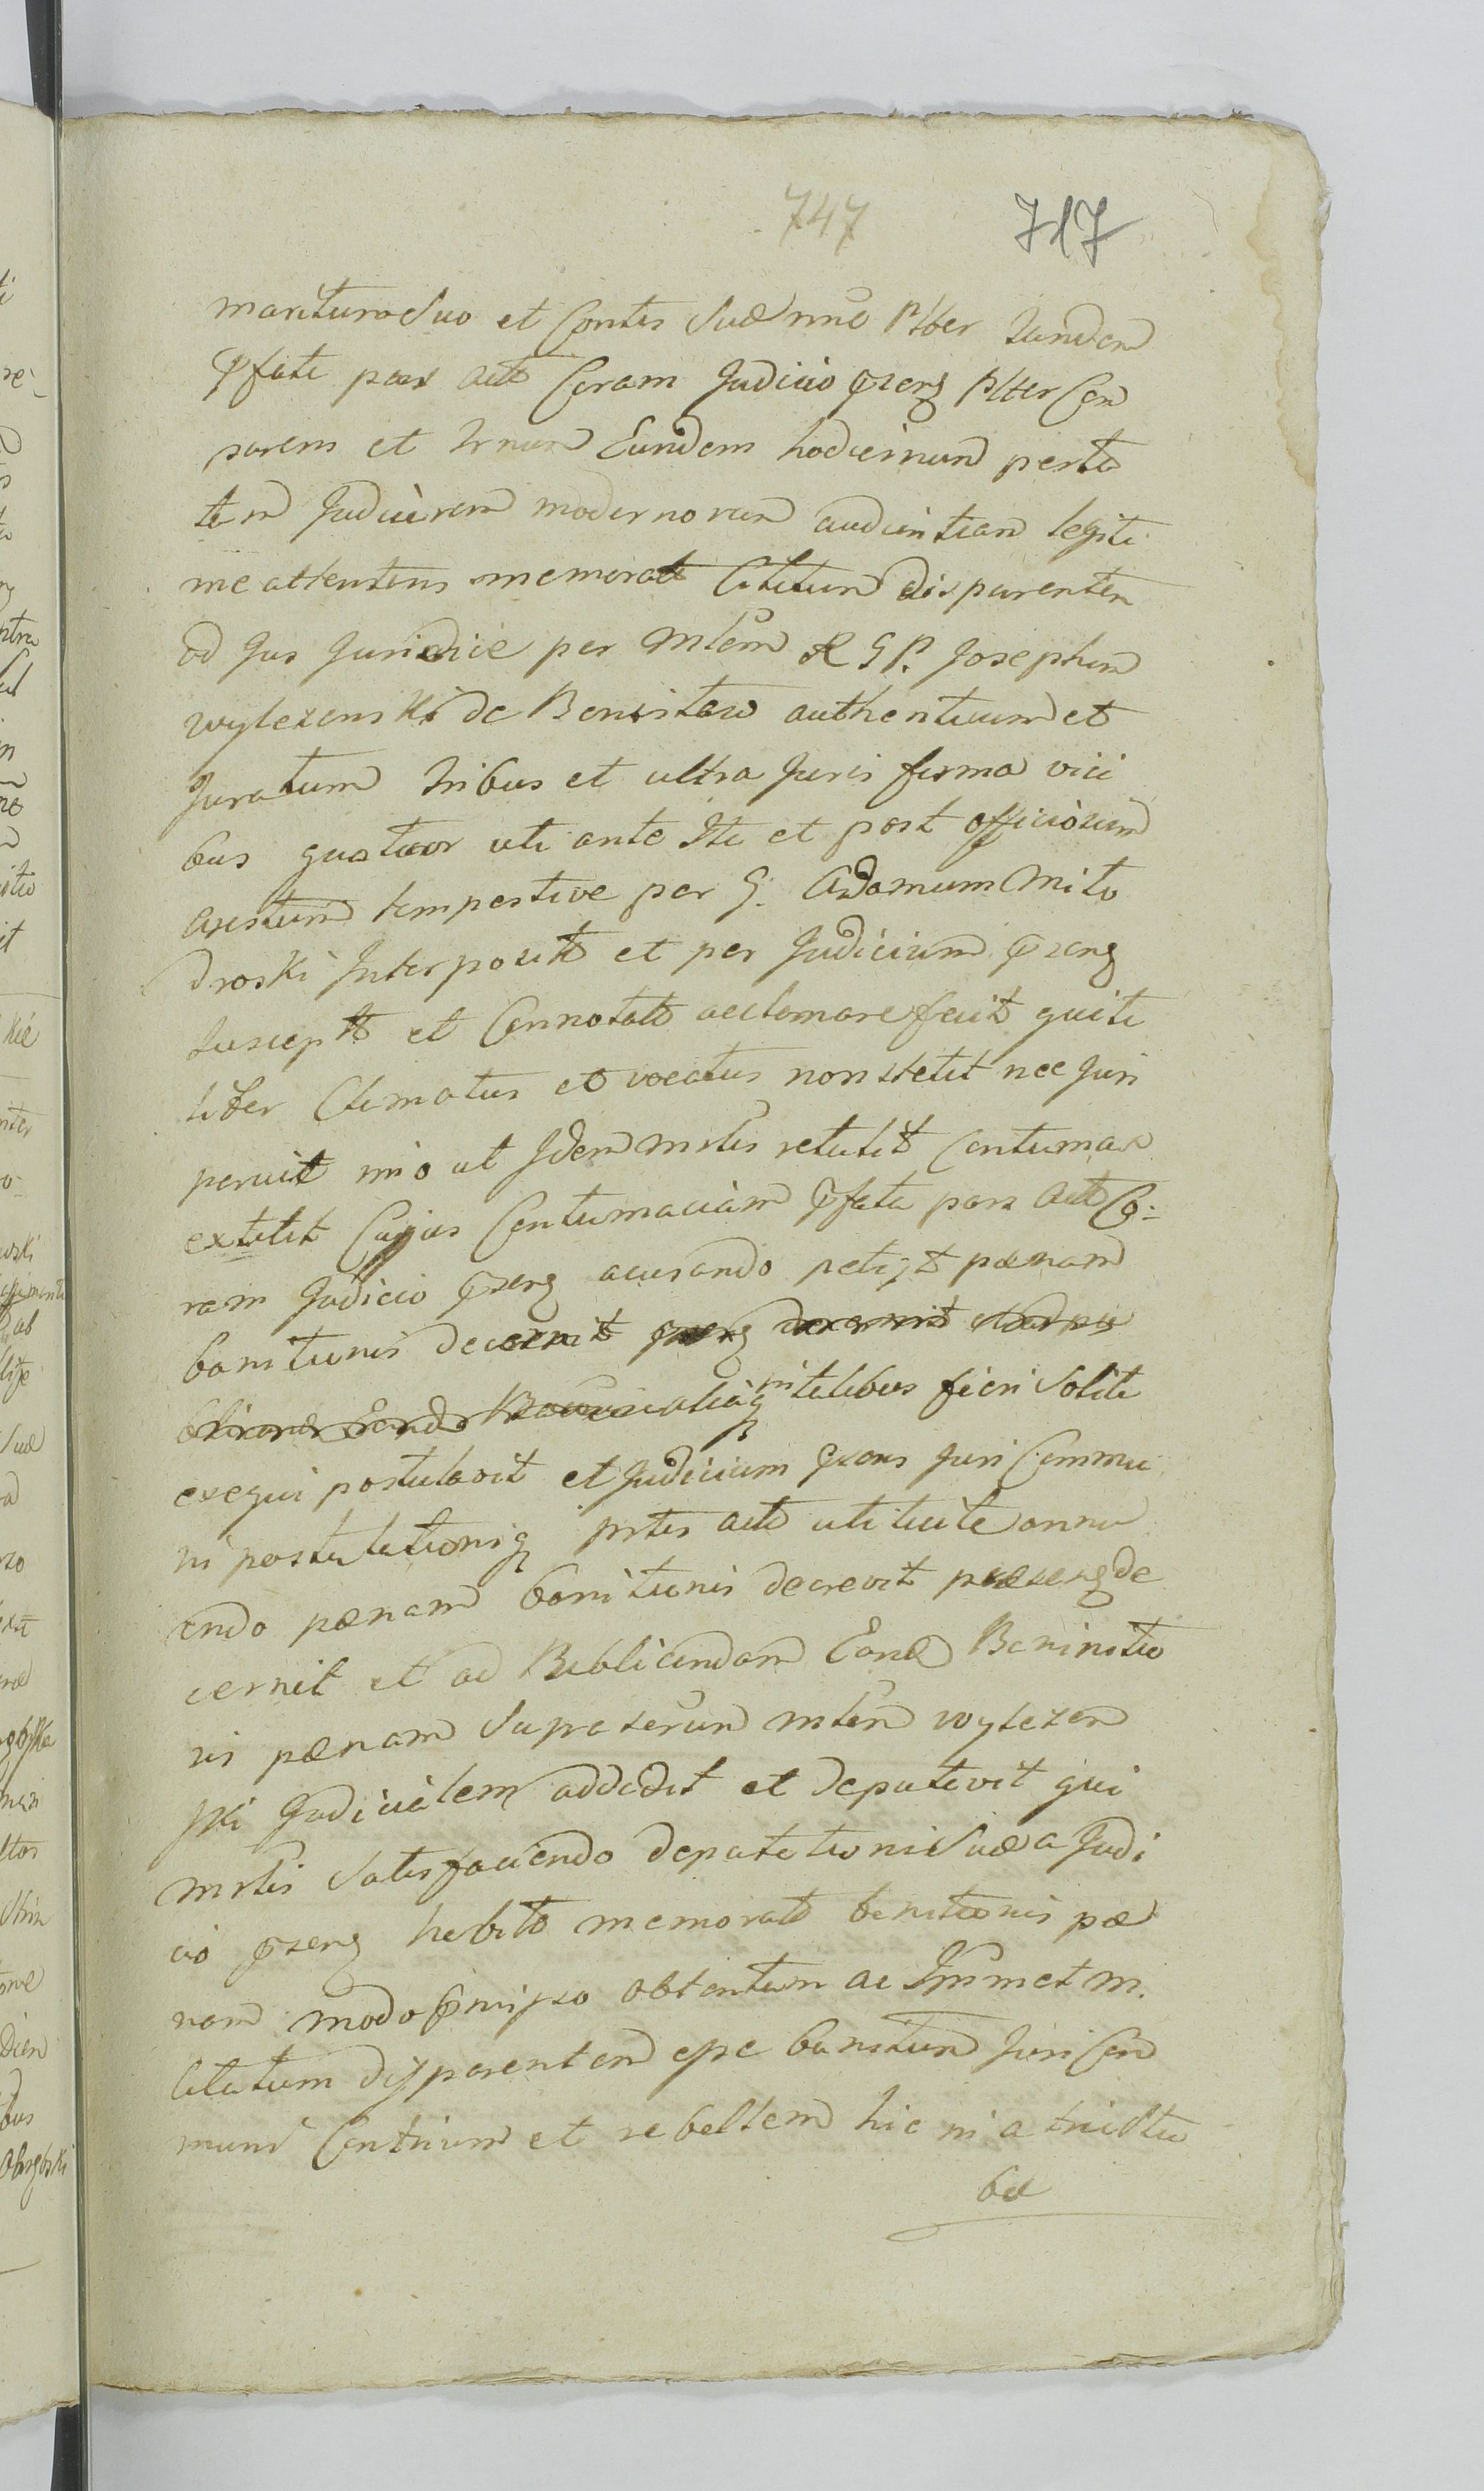 747 717
maritum Suo et Contis Suæ nno Plter Tandem
Pfata pars Act Coram Judicio pseng Plter Com
parens et Trnum Eundem hodiernum perla
tem Judiciorum modernorum audientiam legiti
me attentans memorat Citatum disparentem
ad Jus Juridice per Mlem R G P. Josephum
Wylezenski de Boristaw authenticum et
Juratum tribus et ultra Juris forma vici
bus quatuor uti ante Ite et post officiosum
arestum tempestive per G. Adamum Mito
droski Interposit et per Judicium pseng
suscept et Connotatt acclamare fecit qui ta
liter Clamatus et vocatus non stetit nec Juri
paruit imo ut Idem Mrlis retulit Contumax
extitit Cujus Contumaciam Pfata pars Act Co:
ram Judicio pseng acusando petijt pænam
banitionis decernit
in talibus fieri Solite
exequi postulavit et Judicium psens Juri Commu
ni postulationiq prtis acto uti licite annu
endo pænam banitionis decrevit præseng de
cernit et ad Publicandam Eand Baninitio
nis pænam Suprascrum Mlem Wylezen
ski Judicialem addidit et deputavit qui
Mrlis Satisfaciendo deputationi Suæ a Judi
cio pseng habito memorato banitionis pæ
nam modo pmipso obtentum ac Immet M.
Citatum disparentem esse banitum Juri Com
muni Contrium et rebellem hic in atrio